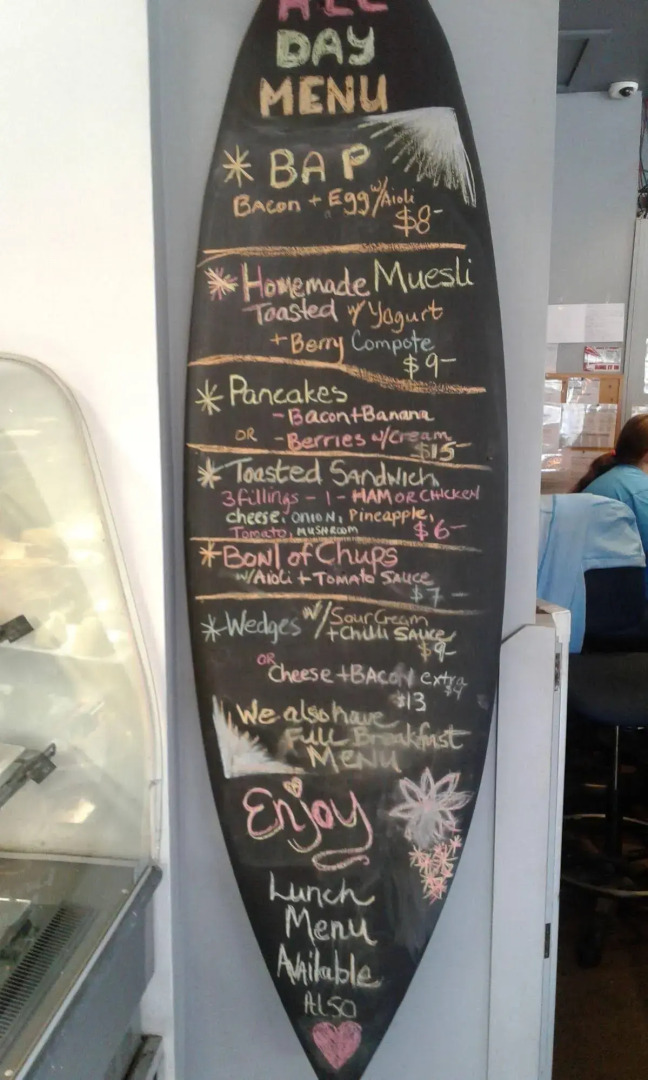 ALL
DAY
MENU
* BAP
Bacon + Egg w/Aioli
$8-
* Homemade Muesli
Toasted w/ Yogurt
+ Berry Compote
$9-
* Pancakes
- Bacon + Banana
OR - Berries w/Cream
$15-
* Toasted Sandwich
3 fillings - 1 - HAM OR CHICKEN
cheese, ONION, Pineapple,
Tomato, MUSHROOM $6-
* Bowl of Chups
w/Aioli + Tomato Sauce
$7-
* Wedges w/ Sour Cream
+ Chilli Sauce
$9-
OR Cheese + BACON extra
$4
$13
We also have
Full Breakfast
MENU
Enjoy
Lunch
Menu
Available
Also